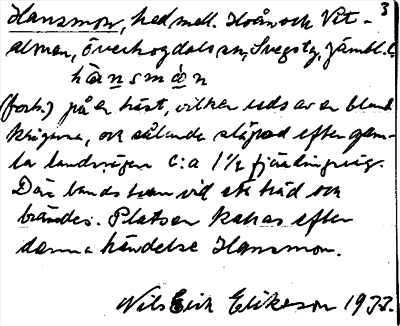 3
Hansmon, hed mell. Hoån och Vit-
älven, Överhogdals sn, Svegs tg, Jämtl. l.
hä̀nsmón
(forts.) på en häst, vilken leds av en bland
krigarna, och sålunda släpad efter gam-
la landsvägen c:a 1½ fjärdingsväg.
Där bands han vid ett träd och
brändes. Platsen kallas efter
denna händelse Hansmon.
Nils Erik Erikson 1933.